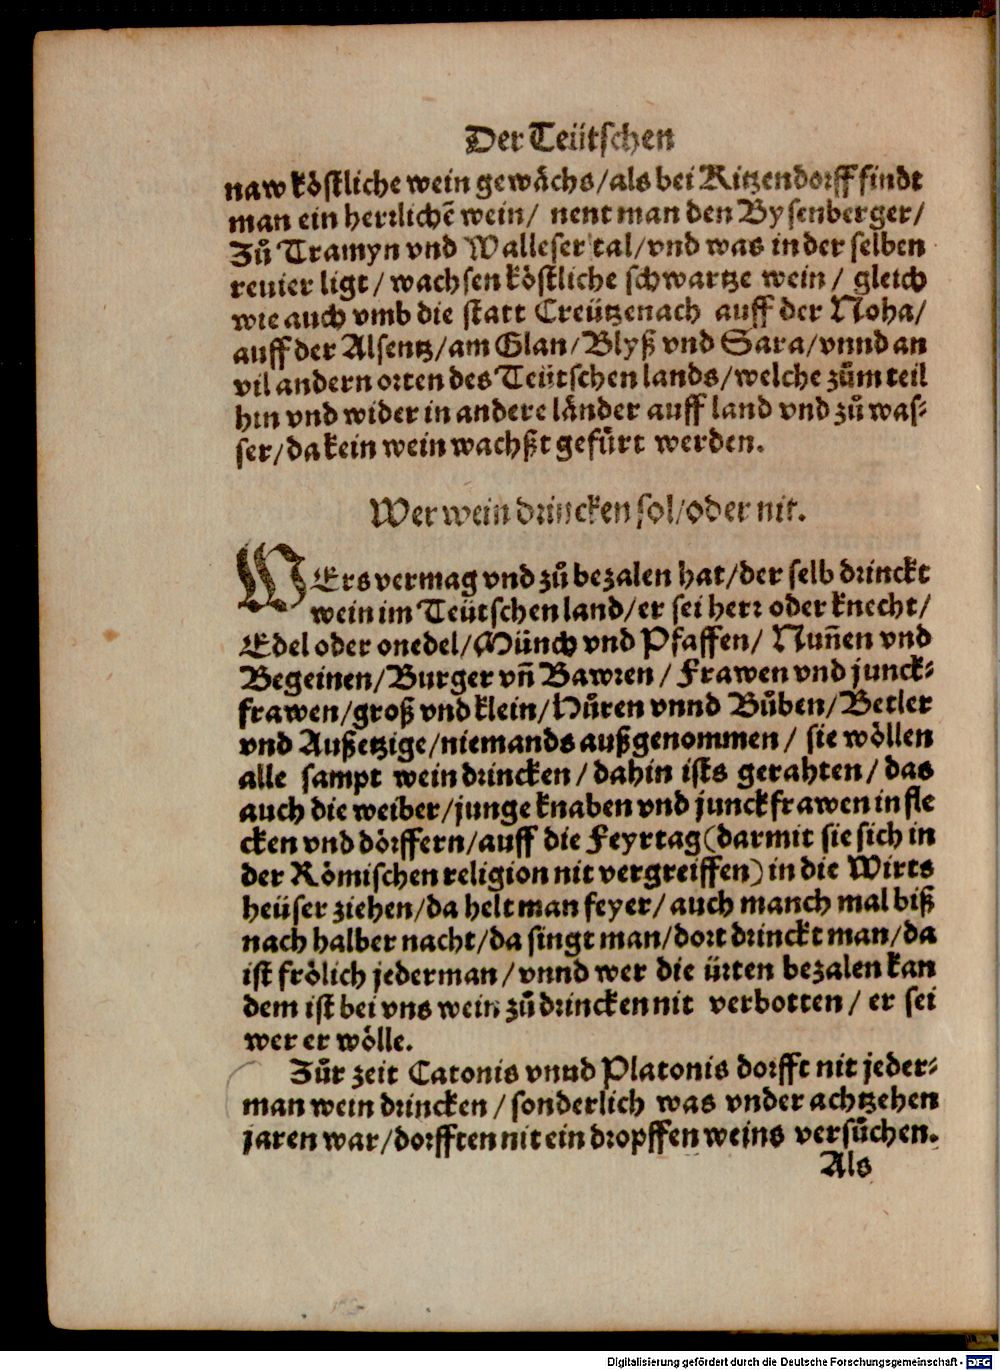 Der Teütschen
naw köstliche wein gewächs/als bei Ritzendorff findt
man ein herrlichẽ wein/ nent man den Bysenberger/
Zů Tramyn vnd Walleser tal/vnd was in der selben
reuier ligt/ wachsen köstliche schwartze wein/ gleich
wie auch vmb die statt Creützenach auff der Noha/
auff der Alsentz/am Glan/Blyß vnd Sara/vnnd an
vil andern orten des Teütschen lands/welche zům teil
hin vnd wider in andere länder auff land vnd zů was-
ser/da kein wein wachßt gefürt werden.
Wer wein drincken sol/oder nit.
WErs vermag vnd zů bezalen hat/der selb drinckt
wein im Teütschen land/er sei herr oder knecht/
Edel oder onedel/Münch vnd Pfaffen/ Nuñen vnd
Begeinen/Burger vñ Bawren/ Frawen vnd junck-
frawen/groß vnd klein/Hůren vnnd Bůben/Betler
vnd Außetzige/niemands außgenommen/ sie wöllen
alle sampt wein drincken/dahin ists gerahten/das
auch die weiber/junge knaben vnd junckfrawen in fle
cken vnd dörffern/auff die Feyrtag(darmit sie sich in
der Römischen religion nit vergreiffen)in die Wirts
heüser ziehen/da helt man feyer/auch manch mal biß
nach halber nacht/da singt man/dort drinckt man/da
ist frölich jederman/vnnd wer die ürten bezalen kan
dem ist bei vns wein zů drincken nit verbotten/ er sei
wer er wölle.
Zůr zeit Catonis vnnd Platonis dorfft nit jeder-
man wein drincken/sonderlich was vnder achtzehen
jaren war/dorfften nit ein dropffen weins versůchen.
Als
Digitalisierung gefördert durch die Deutsche Forschungsgemeinschaft - DFG